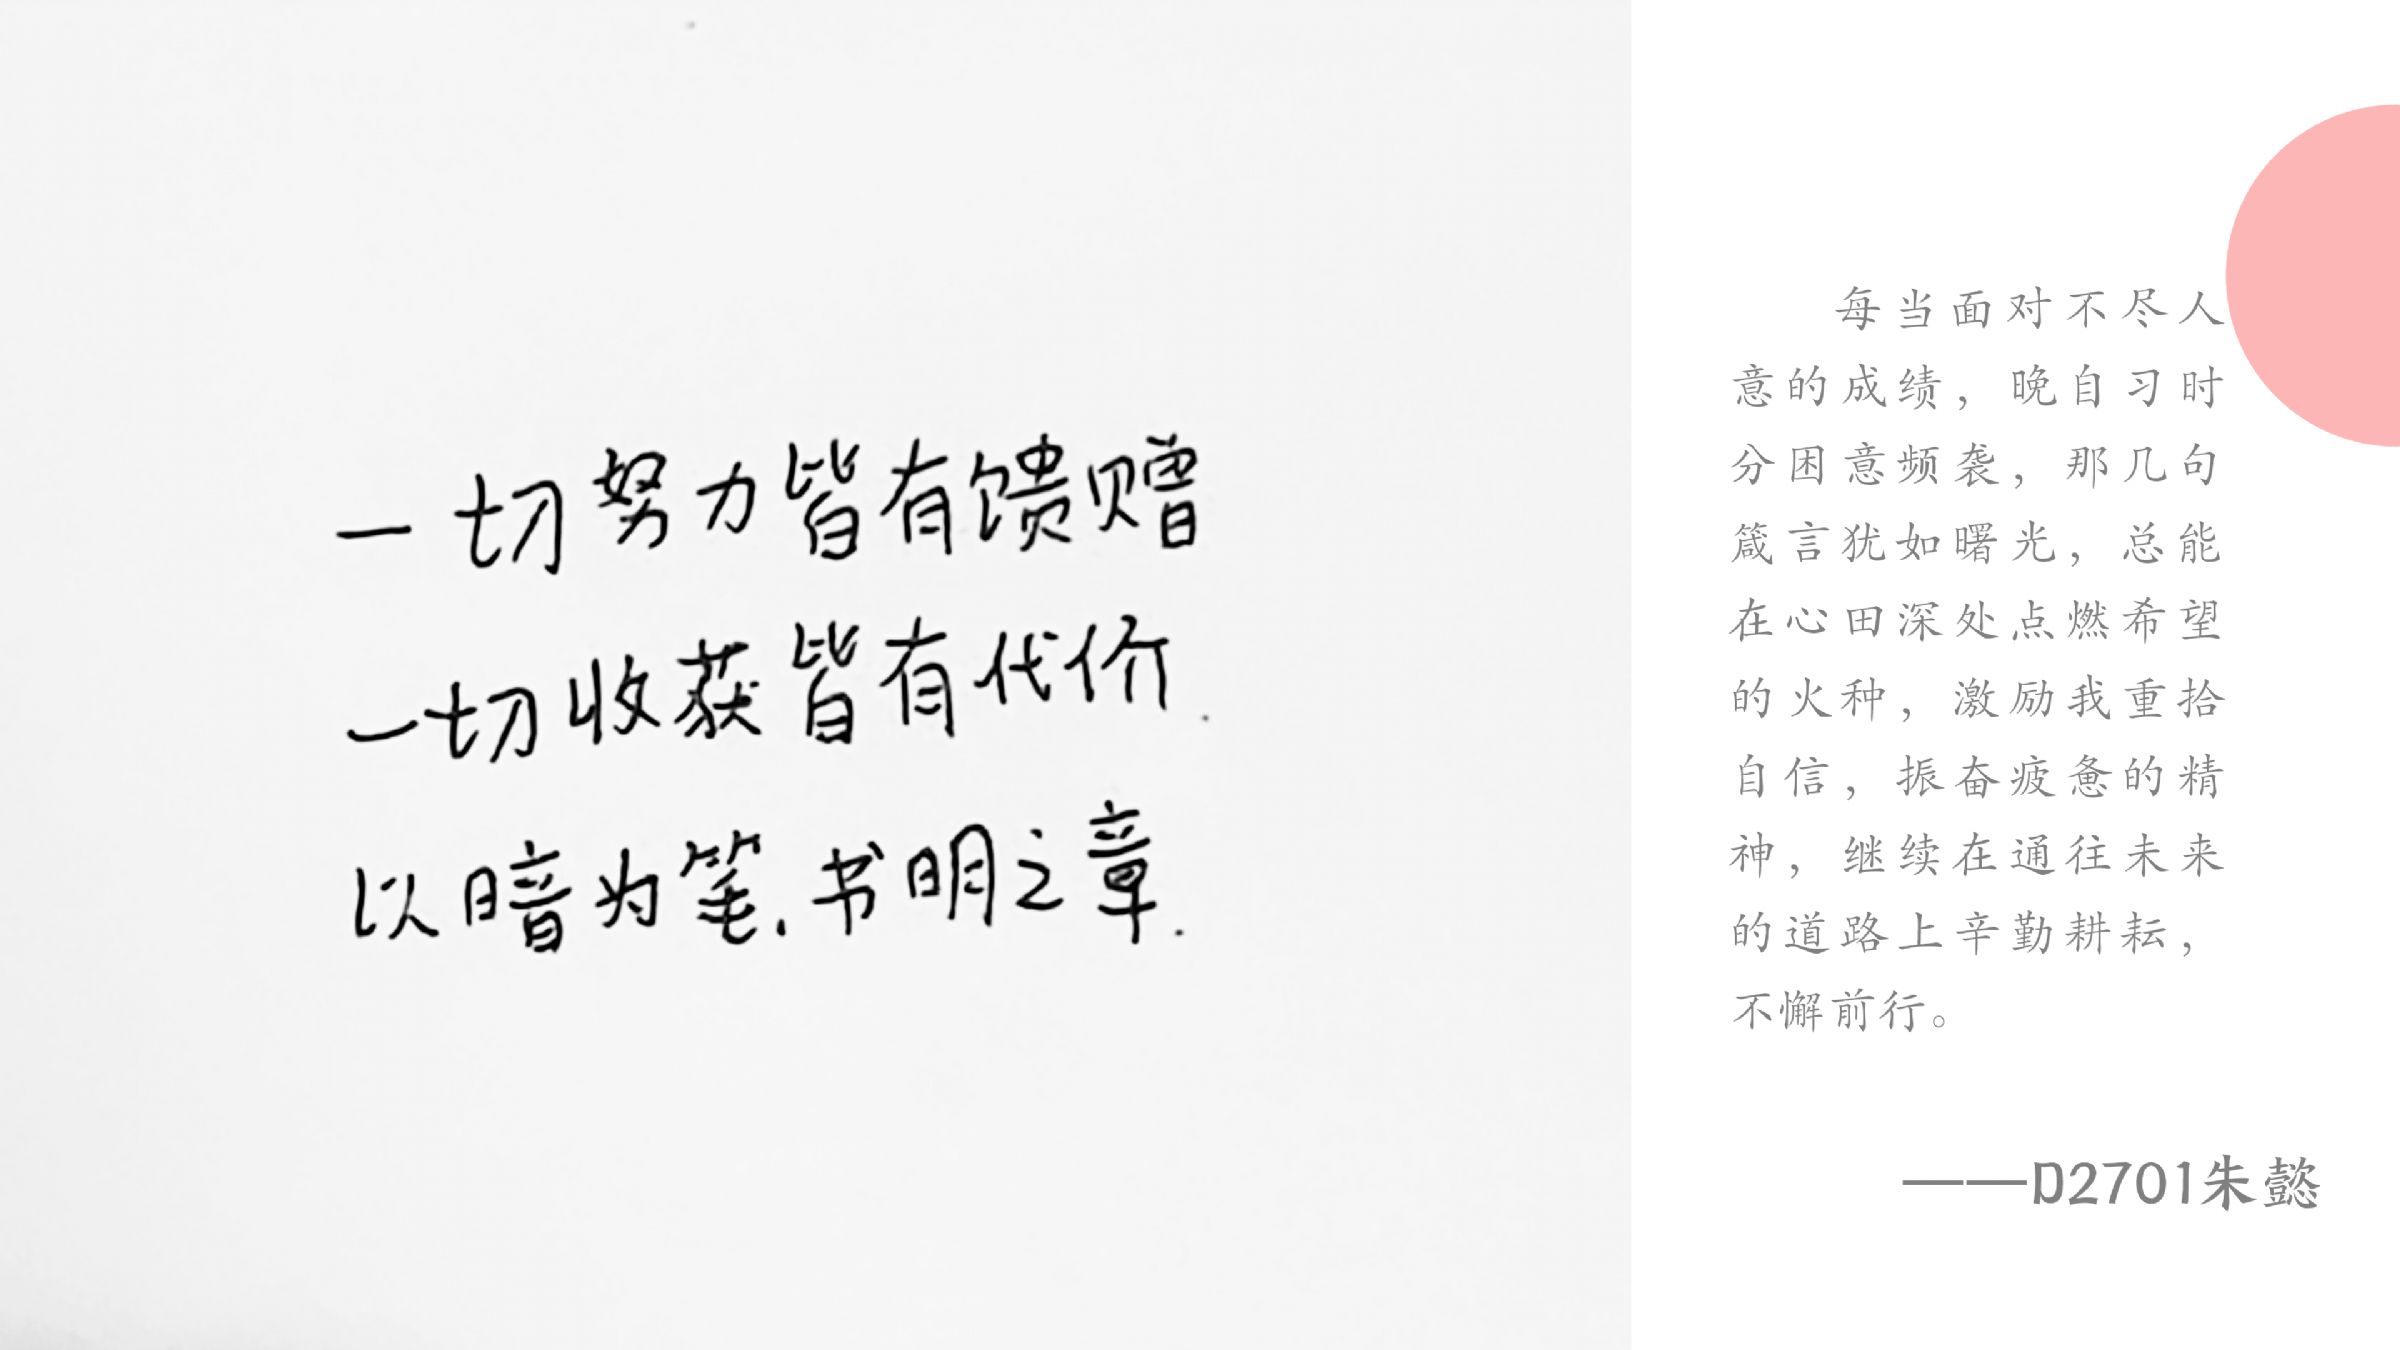 一切努力皆有馈赠
一切收获皆有代价.
以暗为笔.书明之章.
每当面对不尽人
意的成绩，晚自习时
分困意频袭，那几句
箴言犹如曙光，总能
在心田深处点燃希望
的火种，激励我重拾
自信，振奋疲惫的精
神，继续在通往未来
的道路上辛勤耕耘，
不懈前行。
——D2701朱懿